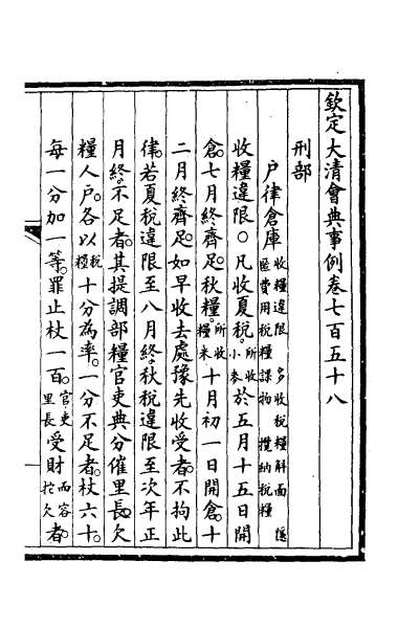 欽定大清會典事例卷七百五十八
刑部
戶律倉庫收糧違限 多收稅糧斛面 隱匿費用稅糧課物 攬納稅糧
收糧違限○凡收夏稅。所收小麥於五月十五日開
倉。七月終齊足。秋糧。所收糧米十月初一日開倉。十
二月終齊足。如早收去處豫先收受者。不拘此
律。若夏稅違限至八月終。秋稅違限至次年正
月終。不足者。其提調部糧官吏典分催里長。欠
糧人戶。各以稅糧十分為率。一分不足者。杖六十。
每一分加一等。罪止杖一百。官吏里長受財而容拖欠者。